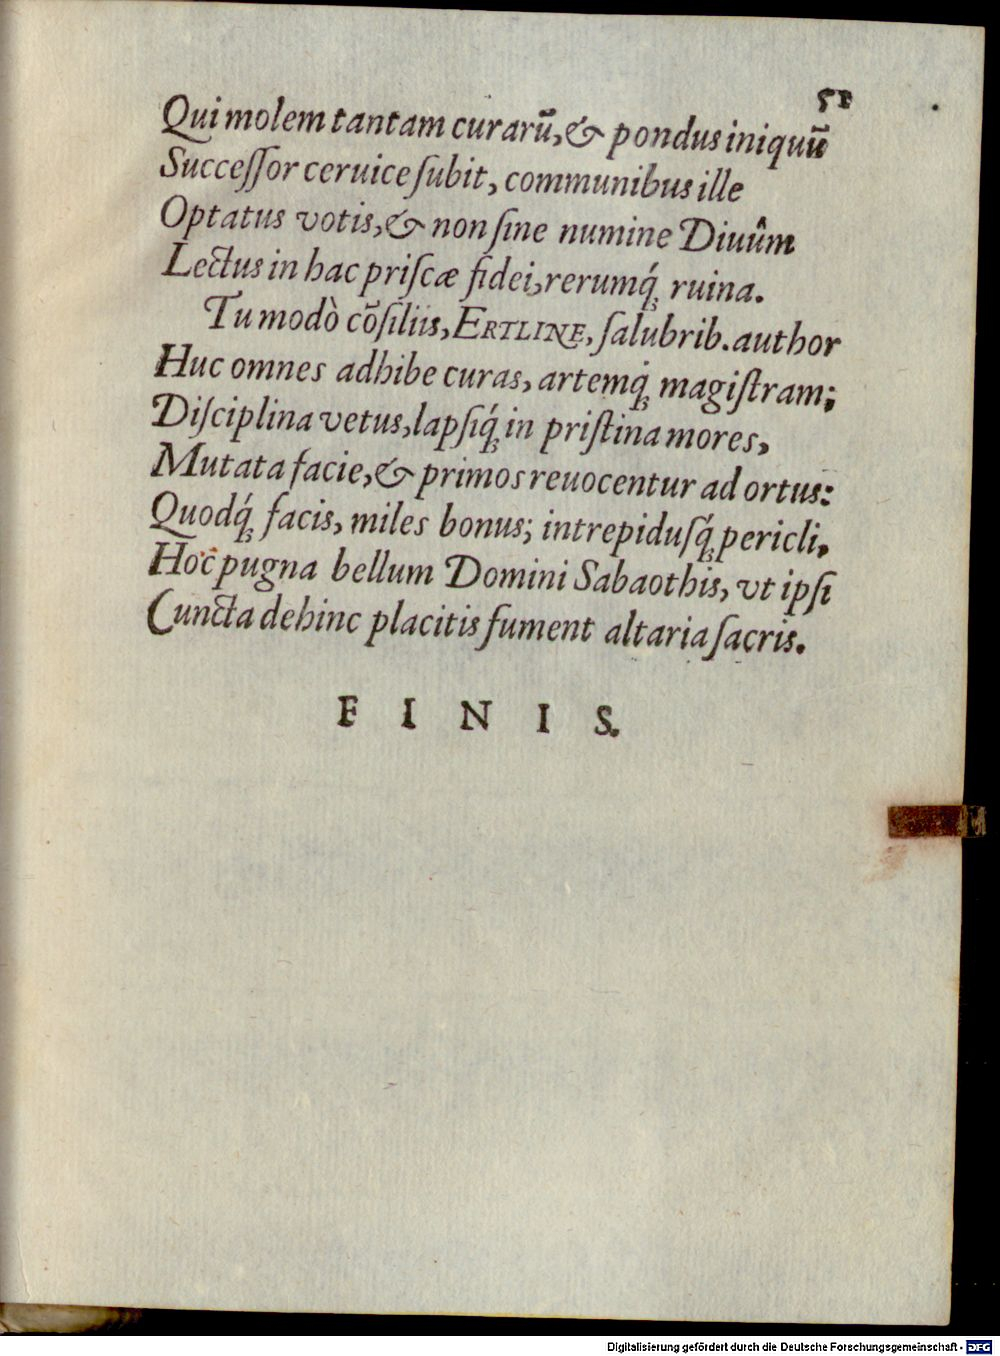 51
Qui molem tantam curarū, & pondus iniquū
Succeſſor ceruice ſubit, communibus ille
Optatus votis, & non ſine numine Diuûm
Lectus in hac priſcæ fidei, rerumq́; ruina.
Tu modò cōſiliis, ERTLINE, ſalubrib. author
Huc omnes adhibe curas, artemq́; magiſtram;
Diſciplina vetus, lapſiq́; in priſtina mores,
Mutata facie, & primos reuocentur ad ortus:
Quodq́; facis, miles bonus; intrepiduſq́; pericli,
Hoc pugna bellum Domini Sabaothis, vt ipſi
Cuncta dehinc placitis fument altaria ſacris.
FINIS.
Digitalisierung gefördert durch die Deutsche Forschungsgemeinschaft - DFG